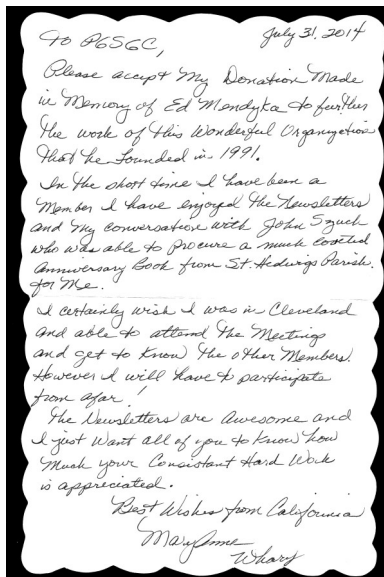 July 31, 2014
To PGSGC,
Please accept My Donation Made
in Memory of Ed Mendyka to further
the work of this Wonderful Organization
that he founded in 1991.
In the short time I have been a
Member I have enjoyed the Newsletters
and my conversation with John Szuch
who was able to procure a much coveted
anniversary book from St. Hedwigs Parish
for Me.
I certainly wish I was in Cleveland
and able to attend the Meetings
and get to know the other Members.
However I will have to participate
from afar!
The Newsletters are awesome and
I just want all of you to know how
Much your Consistant Hard Work
is appreciated.
Best Wishes from California
Maryanne
Wharf